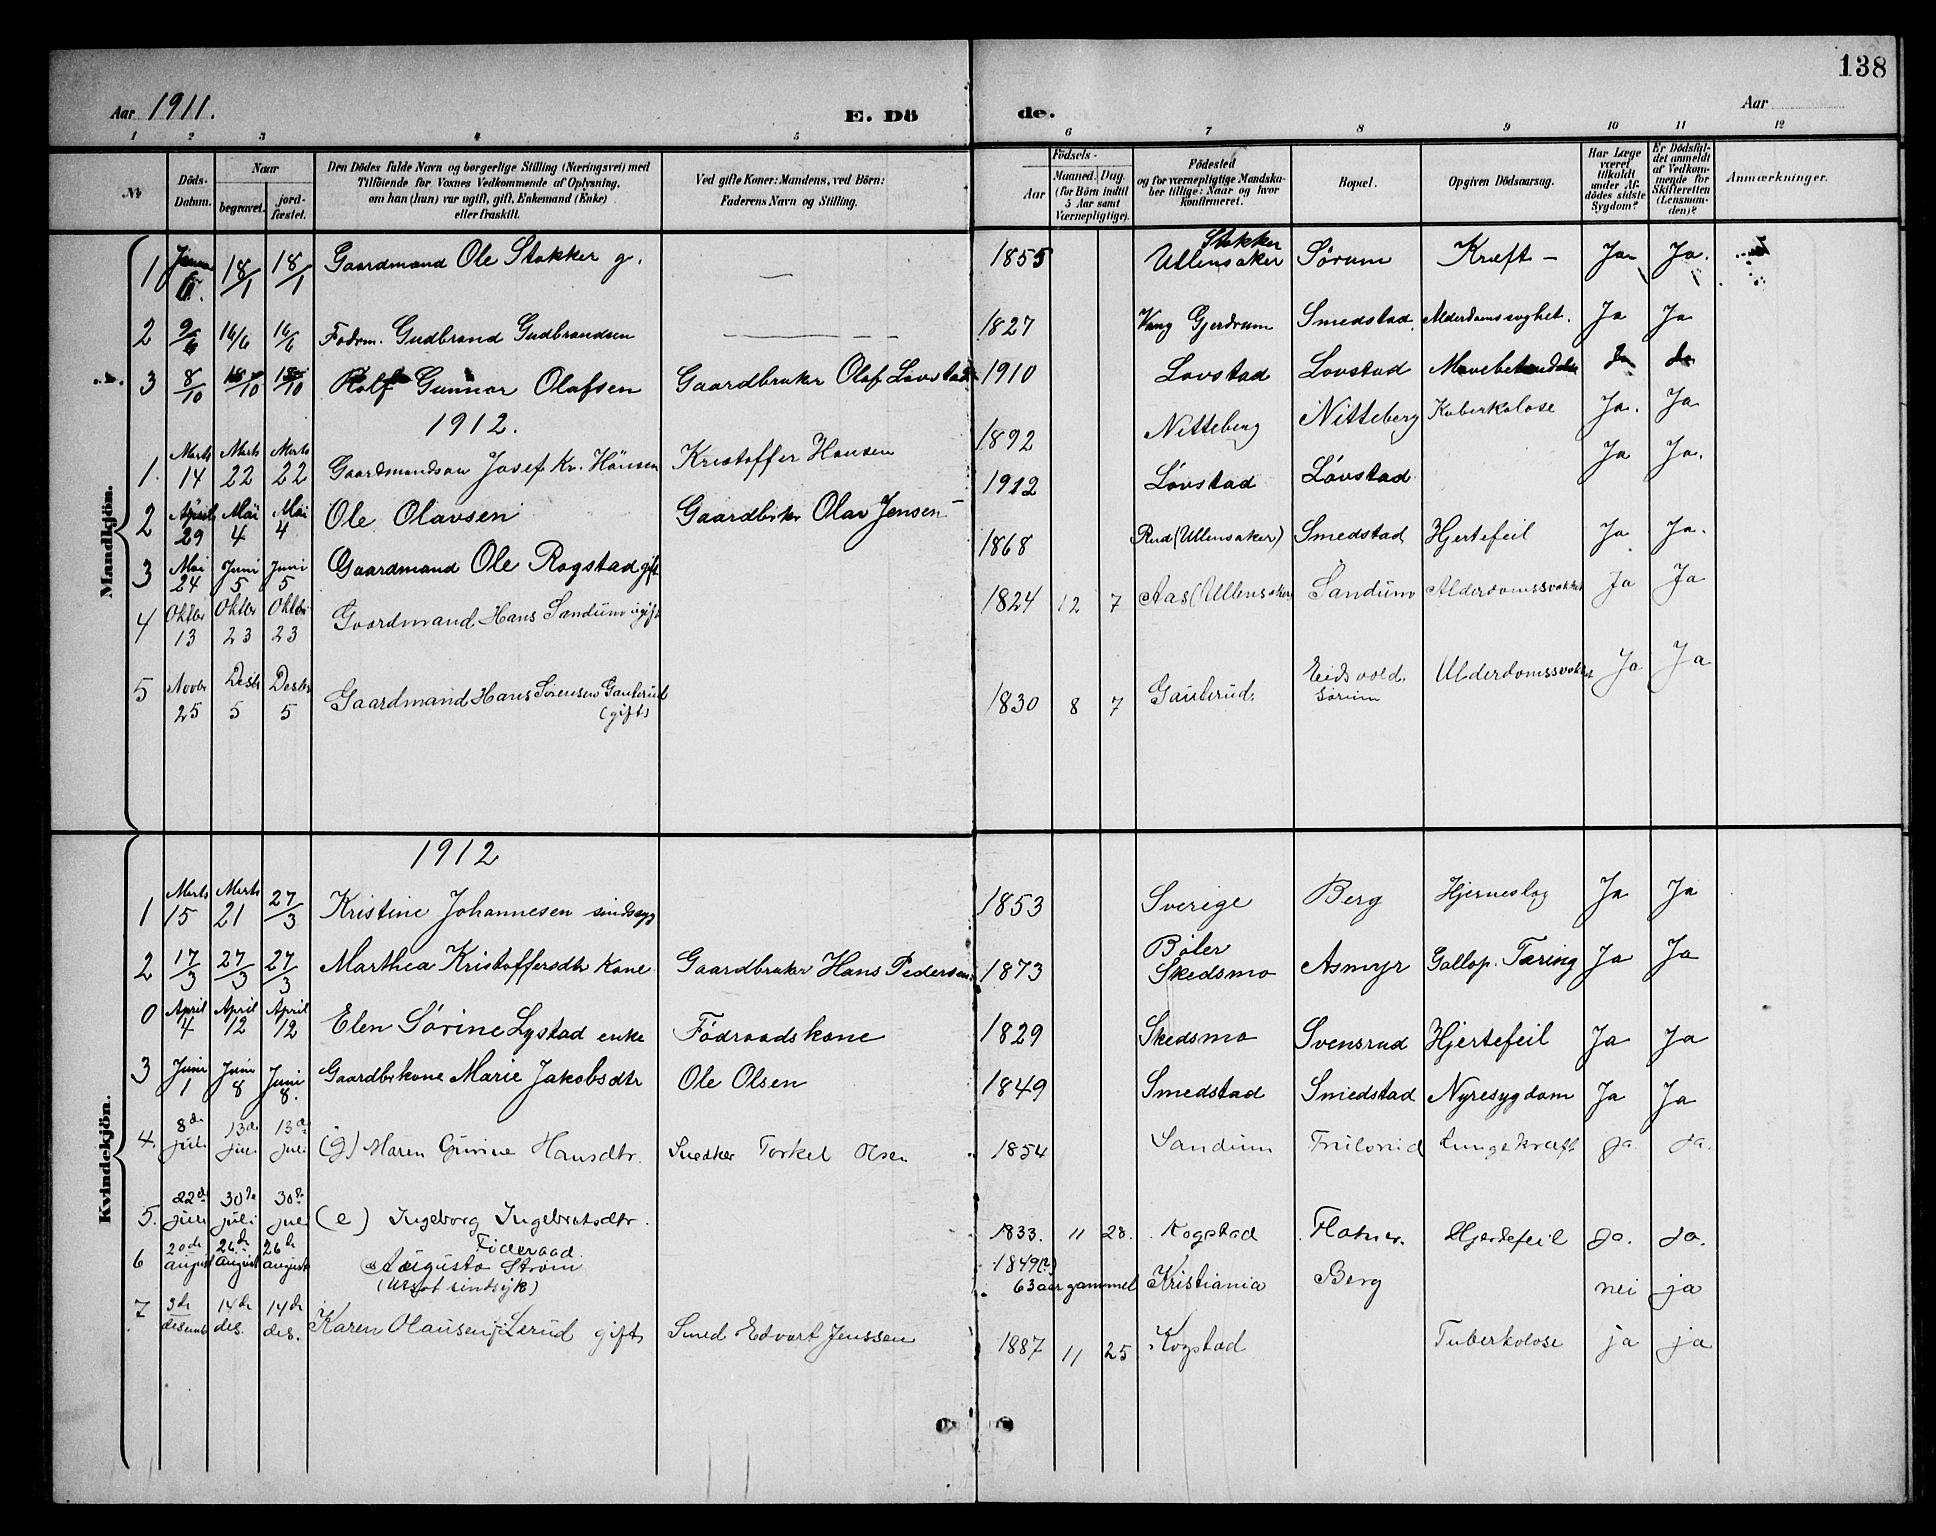 138
Aar 1911.
E. Dö
de.
Aar
1 2 3 4 5 6 7 8 9 10 11 12
№
Döds-Datum.
Naar
begravet.
jord-fæstet.
Den Dödes fulde Navn og borgerlige Stilling (Næringsvei) med
Tilföiende for Voxnes Vedkommende af Oplysning,
om han (hun) var ugift, gift, Enkemand (Enke)
eller fraskilt.
Ved gifte Koner: Mandens, ved Börn:
Faderens Navn og Stilling.
Födsels-
Aar
Maaned. Dag.
(for Börn indtil
5 Aar samt
Værnepligtige).
Födested
og for værnepligtige Mandska-
ber tillige: Naar og hvor
Konfirmeret.
Bopæl.
Opgiven Dödsaarsag.
Har Læge
været
tilkaldt
under Af-
dödes sidste
Sygdom?
Er Dödsfal-
det anmeldt
af Vedkom-
mende for
Skifteretten
(Lensman-
den)?
Anmærkninger.
Mandkjön.
1 18/1 18/1 Gaardmand Ole Stokker g. — 1855 Stokker Ullensaker Sørum Kræft — Ja Ja.
2 9/6 16/6 16/6 Födrm. Gudbrand Gudbrandsen 1827 Vang Gjerdrum Smedstad Alderdomssvaghet. Ja Ja
3 8/10 18/10 18/10 Rolf Gunnar Olafsen Gaardbruker Olaf Lovstad 1910 Lovstad Lovstad Ja Ja
1912.
1. Marts 14 Marts 22 Marts 22 Gaardmandsøn Josef Kr. Hansen Kristoffer Hansen 1892 Nitteberg Nitteberg Tuberkolose Ja. Ja
2 April 29 Mai 4 Mai 4 Ole Olavsen Gaardbrker Olav Jensen 1912 Lövstad Lövstad Ja Ja.
3 Mai 24 Juni 5 Juni 5 Gaardmand Ole Rogstad gift 1868 Rud (Ullensaker) Smedstad Hjertefeil Ja Ja.
4 Oktbr 13 Oktbr 23 Oktbr 23 Gaardmand Hans Sandum ugift 1824 12 7 Aas (Ullensaker) Sandum Alderdomssvakhet Ja Ja
5 Novbr 25 Desbr 5 Desbr 5 Gaardmand Hans Sörensen Gauterud (gift) 1830 8 7 Gauterud. Eidsvold. Sørum Alderdomssvakhet Ja Ja
Kvindekjön.
1912
1 Marts 15 Marts 21 27/3 Kristine Johannesen sindssyg 1853 Sverige Berg Hjerneslag Ja Ja
2 17/3 27/3 27/3 Marthea Kristoffersdtr Kone Gaardbruker Hans Pedersen 1873 Bøler Skedsmo Asmyr Gallop. Tæring Ja Ja
0 April 4 April 12 April 12 Elen Sörine Lystad enke Födraadskone 1829 Skedsmo Svensrud Hjertefeil Ja Ja
3 Juni 1 Juni 8 Juni 8. Gaardbrkone Marie Jakobsdtr Ole Olsen 1849 Smedstad Smedstad Nyresygdom Ja Ja
4. 8de juli 13de juli 13de juli (g) Maren Gurine Hansdtr. Snedker Torkel Olsen 1854 Sandum Lungekræft ja. ja.
5. 22de juli 30de juli 30de juli (e) Ingeborg Ingebretsdtr. 1833. 11 28. Kogstad Flatner. Hjertefeil ja. ja.
6 20de august 26de august 26de august Föderaad. Augusta Strøm 1849(?) 63 aar gammel Kristiania Berg nei ja
7 3de desemb 14de des. 14de des. Karen Olausen Lerud gift Smed Edvart Jenssen 1887 11 25 Kogstad Tuberkolose ja ja